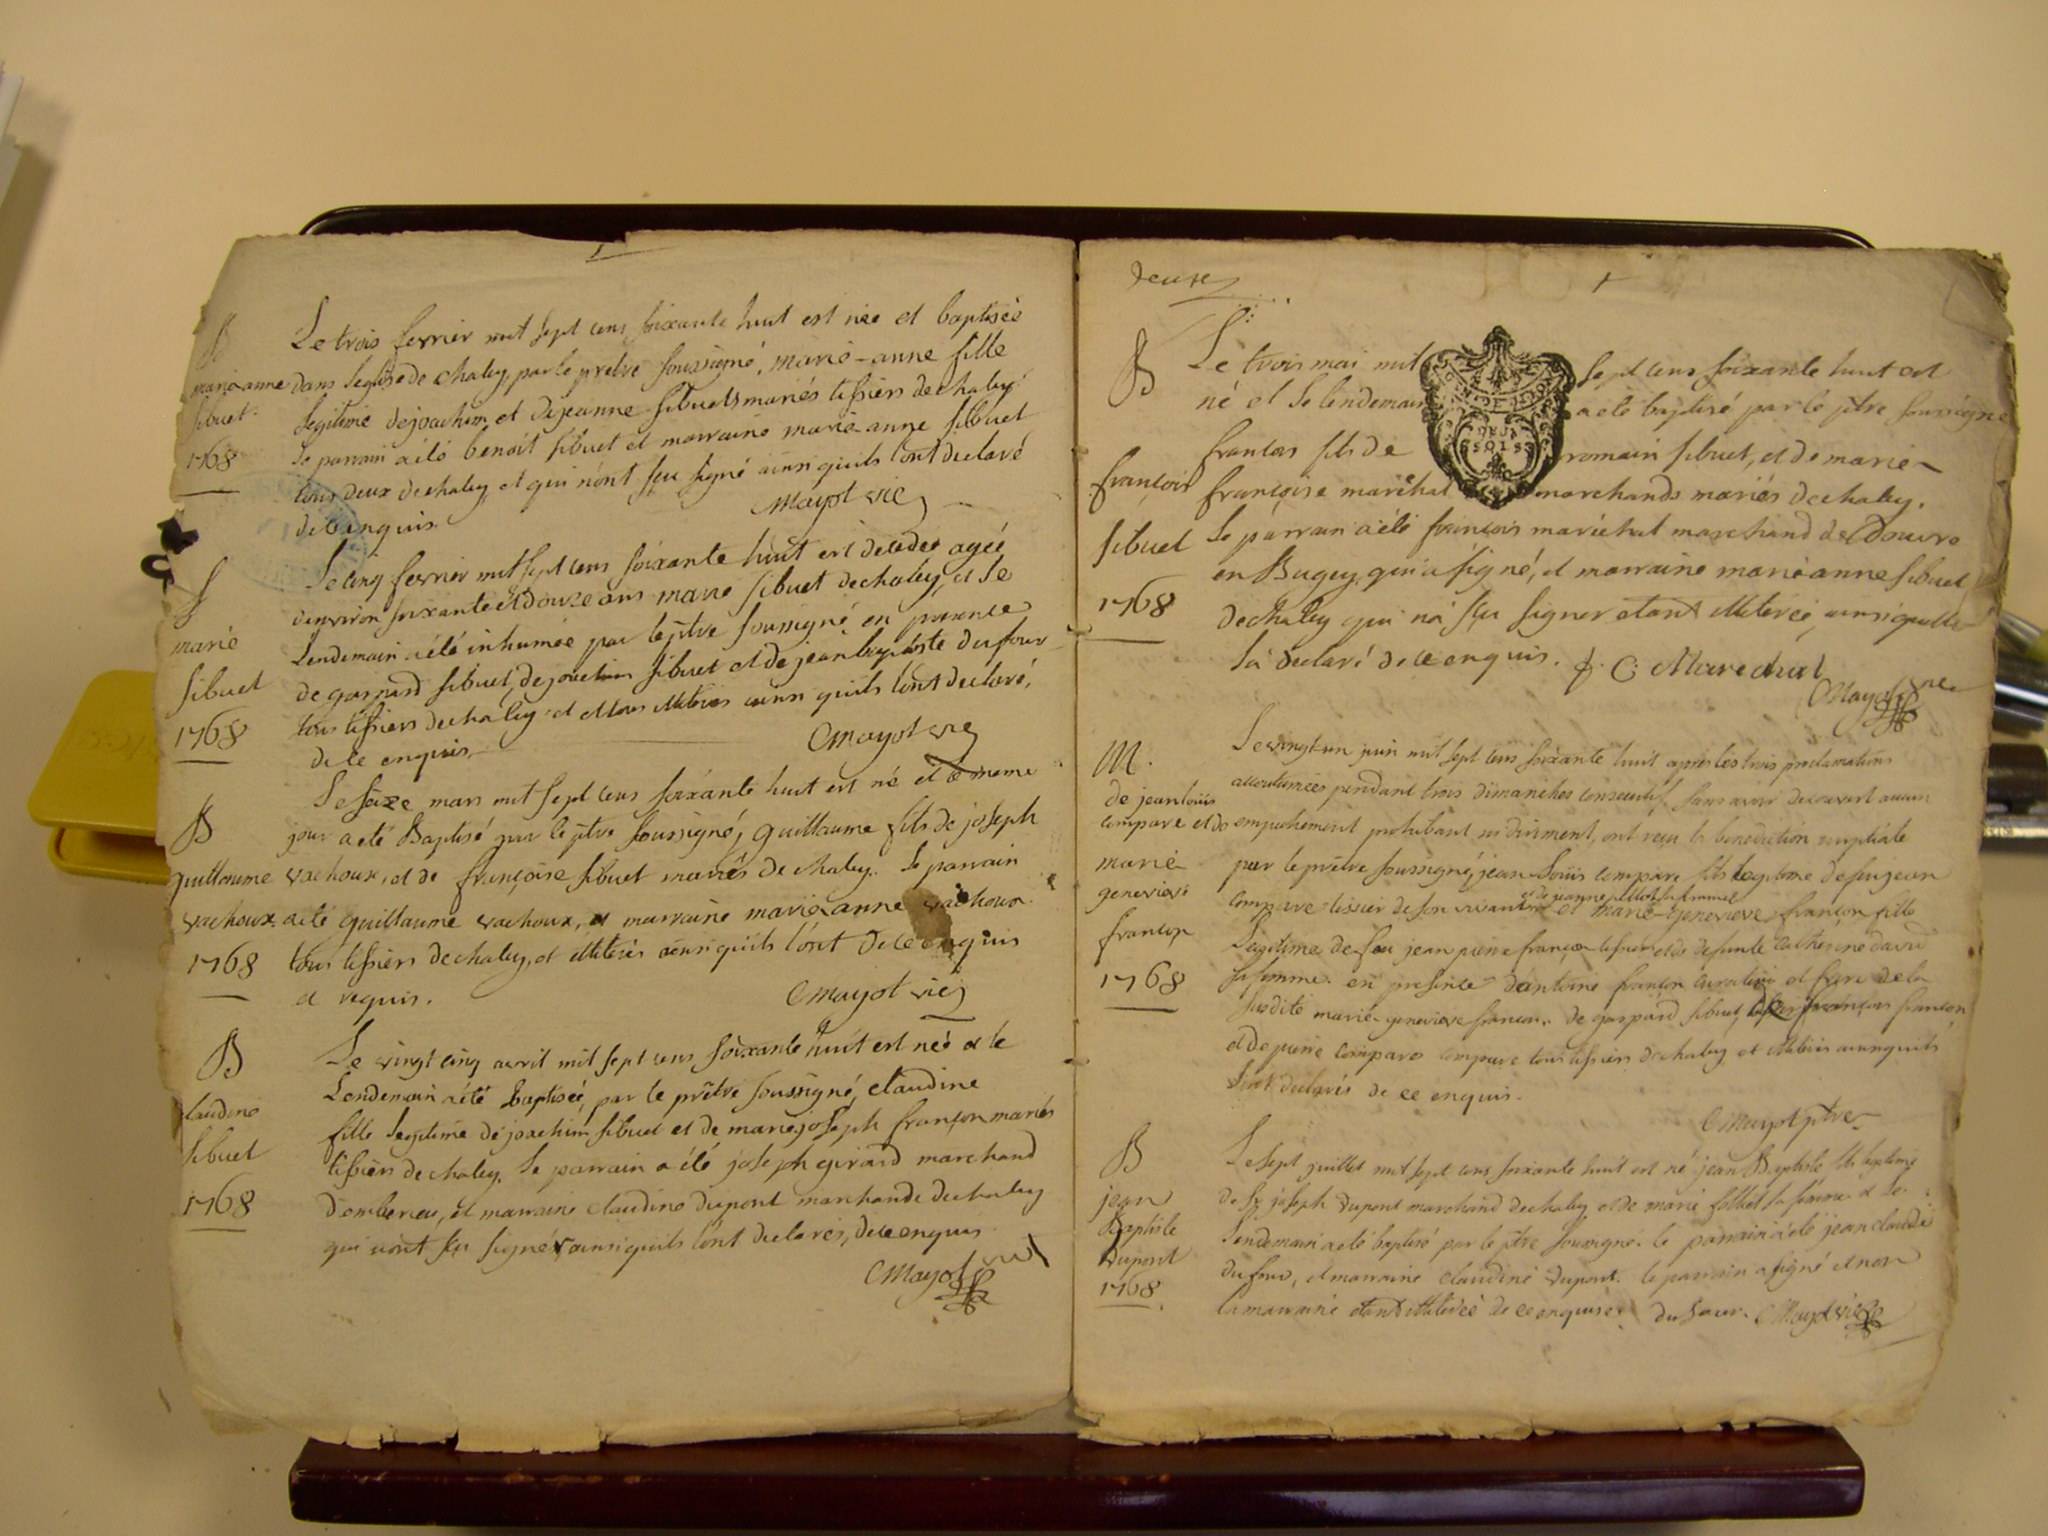 B
marie anne
sibuet
1768
Le trois fevrier mil sept cens soixante huit est née et baptisée
dans leglise de chaley, par le prêtre soussigné, marie-anne fille
legitime de joachim et de jeanne sibuet mariés tissiers de chaley
le parrain a été benoit sibuet et marraine marie-anne sibuet
tous deux de chaley, et qui n'ont sçu signé ainsi quils l'ont declaré
de ce enquis.
Mayot vic
S
marie
sibuet
1768
Le cinq fevrier mil sept cens soixante huit est decedée agée
denviron soixante et douze ans marie sibuet de chaley, et le
lendemain a été inhumée par le ptre soussigné en presence
de gaspard sibuet, de sibuet et de jean baptiste dufour
tous tissiers de chaley et illiterés ainsi quils l'ont declaré,
de ce enquis.
Mayot vic
B
guillaume
vachoux
1768
Le seize mars mil sept cens soixante huit est né et le meme
jour a eté Baptisé par le ptre soussigné, guillaume fils de joseph
vachoux, et de françoise sibuet mariés de chaley. le parrain
a eté guillaume vachoux, et marraine marie anne vachoux
tous tissiers de chaley, et illiterés ainsi quils l'ont de ce enquis
et requis.
Mayot vic
B
claudine
sibuet
1768
Le vingt cinq avril mil sept cens soixante huit est neé et le
Lendemain a été Baptisée, par le prêtre soussigné, claudine
fille legitime de joachim sibuet et de marie joseph françon mariés
tissiers de chaley. le parrain a été joseph girard marchand
d'amberieu, et marraine claudine dupont marchande de chaley
qui n'ont sçu signér ainsi quils l'ont declarés, de ce enquis
Mayot vic
deuxe
B
françois
sibuet
1768
Le trois mai mil sept cens soixante huit est
né et le lendemain a eté baptisé par le ptre soussigné
francois fils de romain sibuet, et de marie-
françoise maréchal marchands mariés de chaley.
le parrain a été françois maréchal marchand de Douvre
en Bugey, qui a signé, et marraine marie anne sibuet
de chaley qui n'a sçu signer etant illiterée, ainsi quelle
l'a declaré de ce enquis. f. C. Marechal
Mayot vic
M.
de jean loüis
compare et de
marie
genevieve
françon
1768
Le vingt un juin mil sept cens soixante huit après les trois proclamations
accoutumées pendant trois dimanches consecutif, sans avoir decouvert aucun
empechement prohibant ni diriment, ont reçu la benediction nuptiale
par le prêtre soussigné, jean-Loüis compare fils legitime de feu jean
compare tissier de son vivant et de jeanne sa femme et marie-genevieve françon fille
Legitime de feu jean pierre françon tissier et de defunte catherine david
sa femme. en presence d'antoine françon curateur et frere de la
susdite marie-genevieve françon. de gaspard sibuet, françois françon,
et de pierre compare tous tissiers de chaley et illiterés ainsi quils
l'ont declarés de ce enquis.
Mayot ptre
B
jean
Baptiste
dupont
1768.
Le sept juillet mil sept cens soixante huit est né jean Baptiste fils legitime
de Sr joseph dupont marchand de chaley et de marie sa femme et le
lendemain a eté baptisé par le ptre soussigné. le parrain a été jean claude
dufour, et marraine claudine dupont. le parrain a signé et non
la marraine etant illiterée de ce enquise. du four. Mayot vic